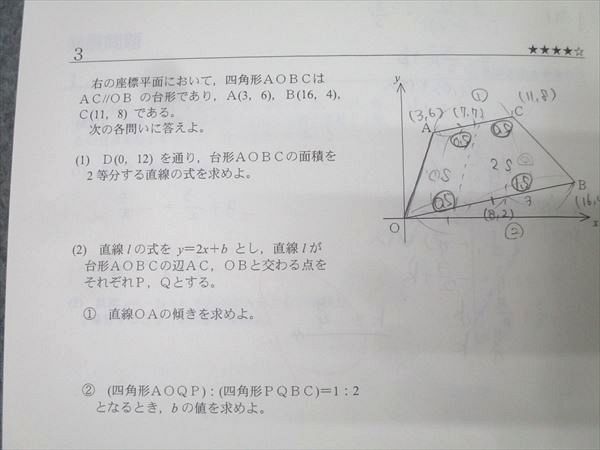 3
★★★★☆
右の座標平面において，四角形AOBCは
AC//OB の台形であり，A(3，6)，B(16，4)，
C(11，8) である。
次の各問いに答えよ。
(1) D(0，12) を通り，台形AOBCの面積を
2等分する直線の式を求めよ。
(2) 直線 l の式を y=2x+b とし，直線 l が
台形AOBCの辺AC，OBと交わる点を
それぞれP，Qとする。
① 直線OAの傾きを求めよ。
② (四角形AOQP)：(四角形PQBC)=1：2
となるとき，bの値を求めよ。
y
(3,6)
(7,7)
①
(11,8)
A
C
0.5
0.5
2S
1.5
0.5
3
B
(16,4
O
(8,2)
②
x